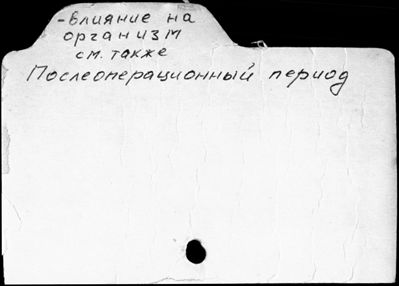 -Влияние на
организм
см. также
Послеоперационный период